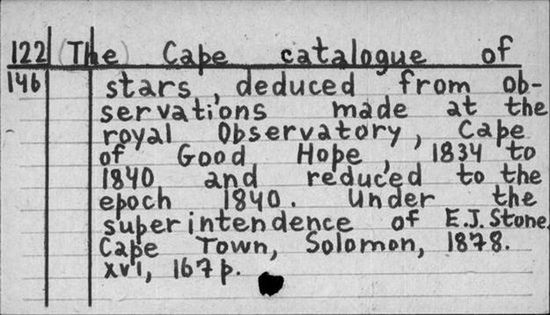 122 (The) Cape catalogue of
146 stars, deduced from ob-
servations made at the
royal Observatory, Cape
of Good Hope, 1834 to
1840 and reduced to the
epoch 1840. Under the
superintendence of E.J. Stone.
Cape Town, Solomon, 1878.
xvi, 167 p.